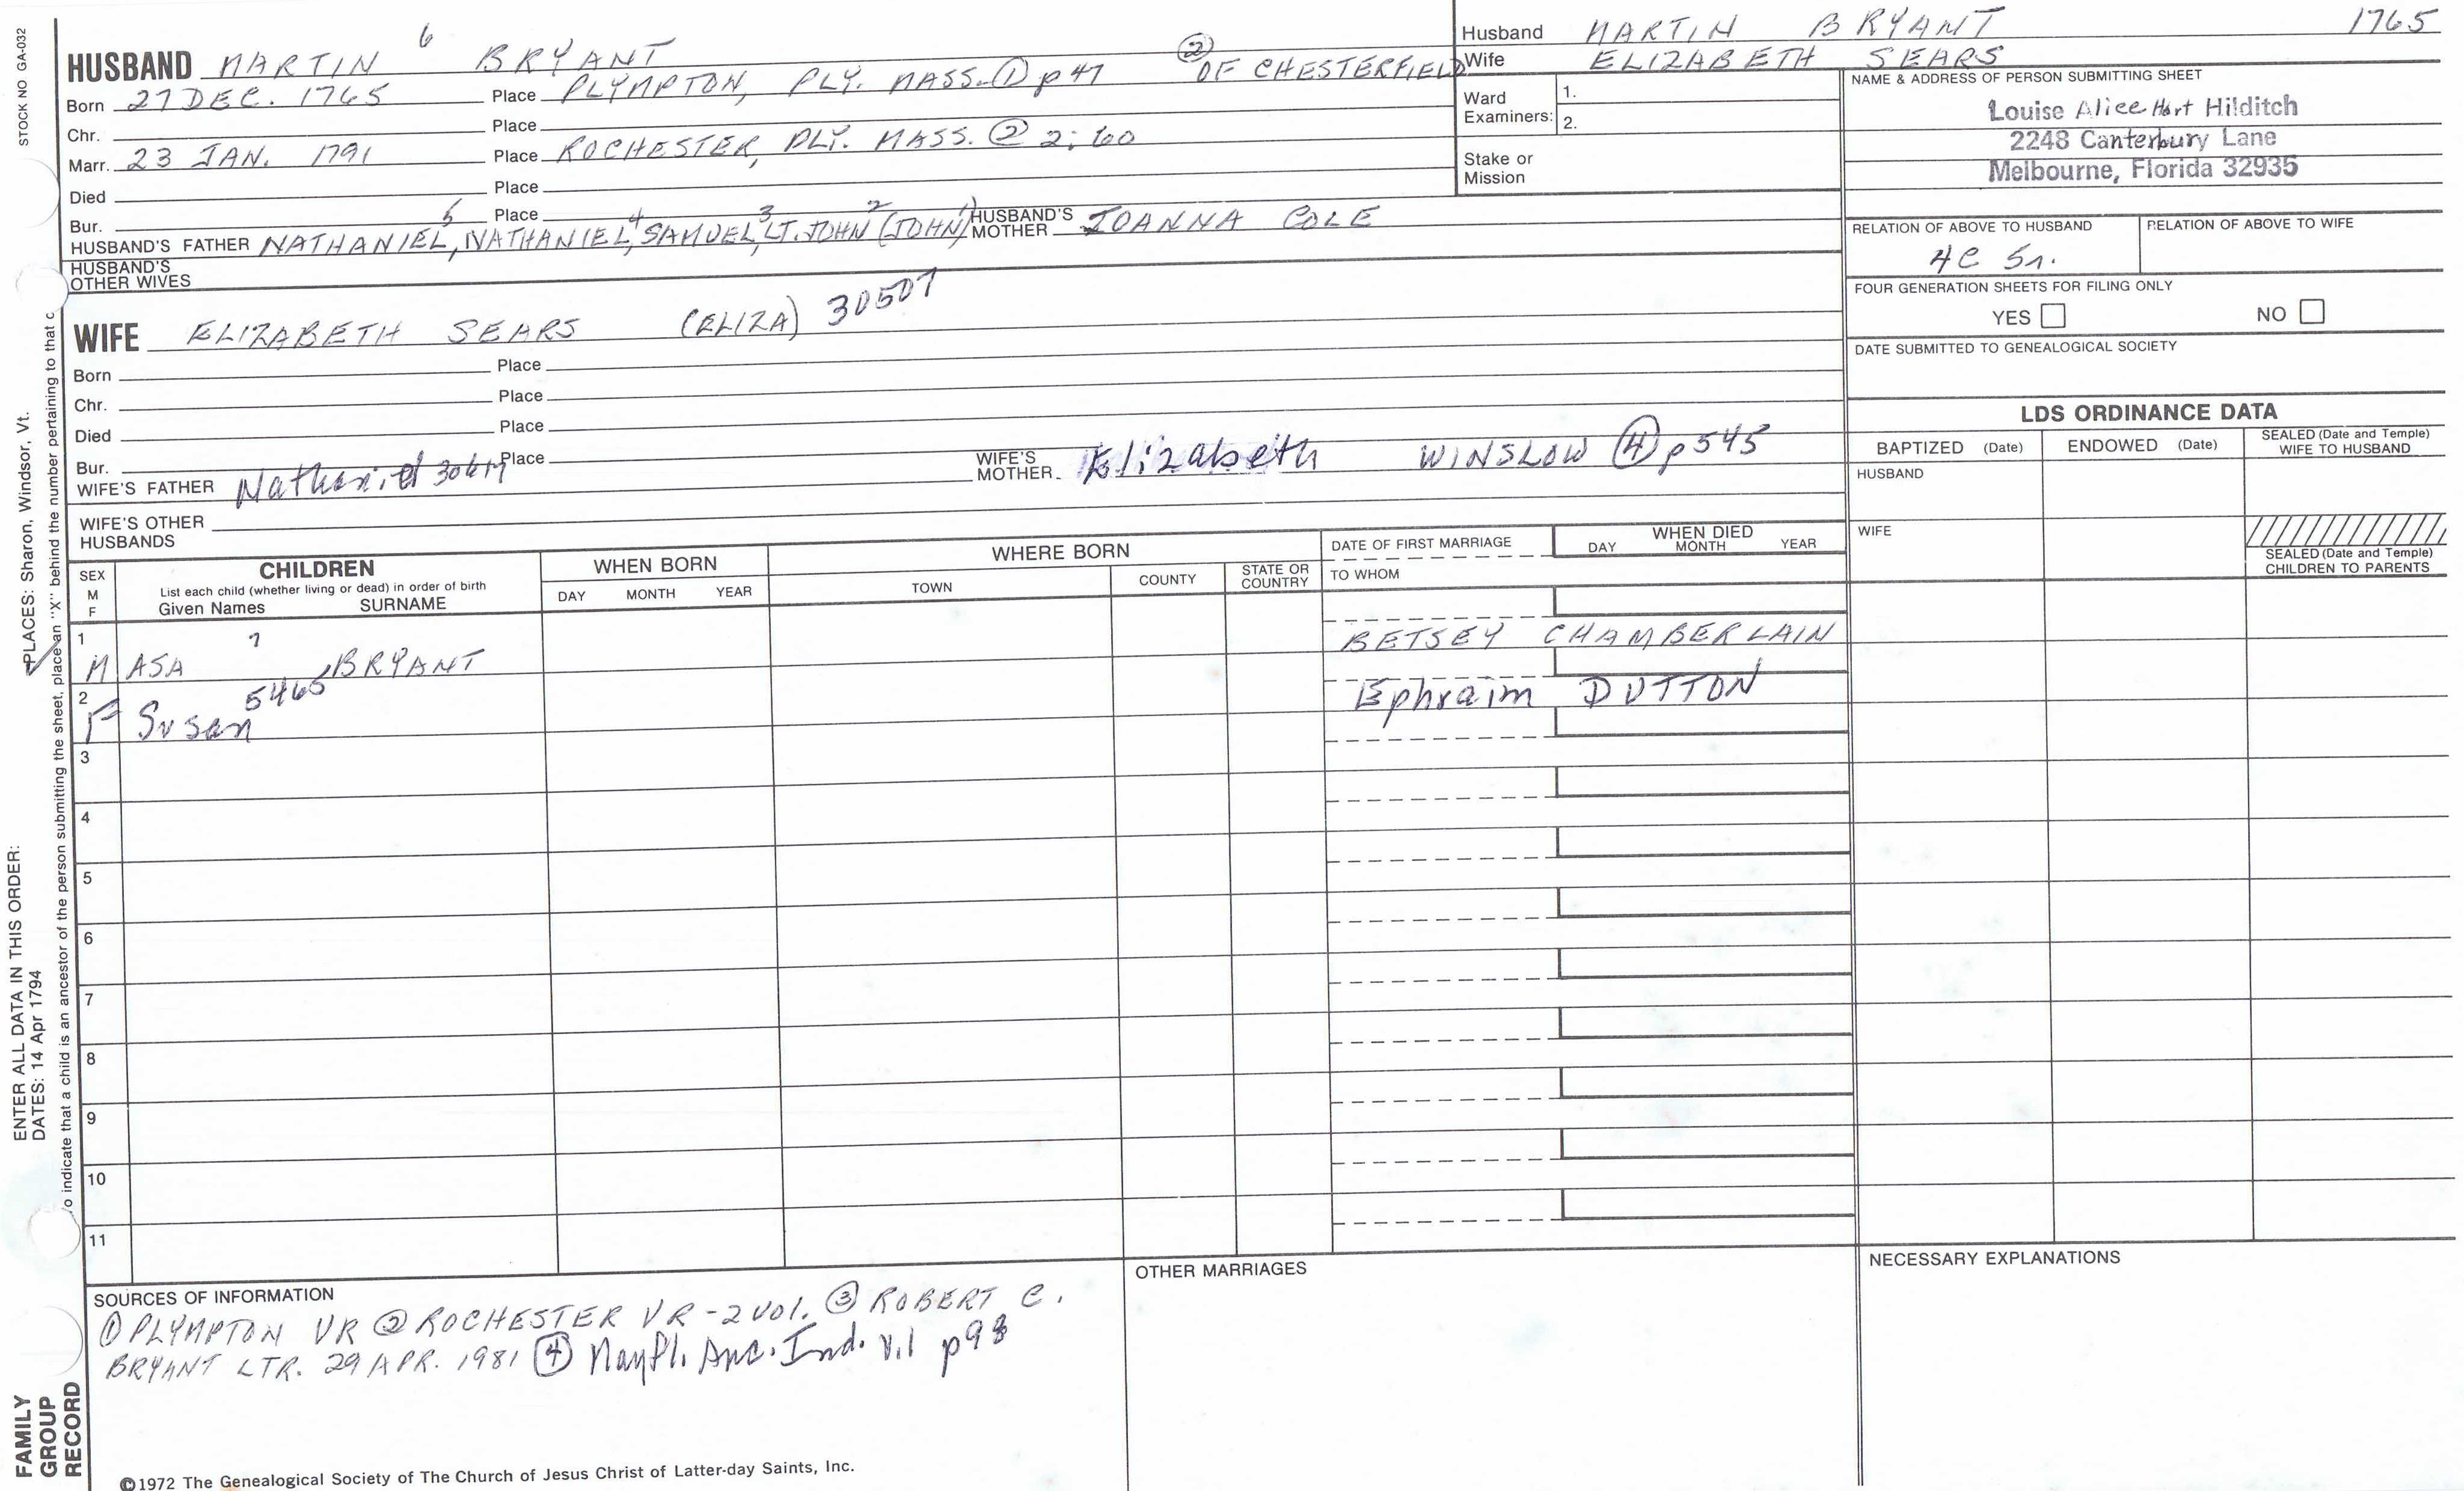 STOCK NO GA-032
HUSBAND MARTIN 6 BRYANT
② OF CHESTERFIELD
Born 27 DEC. 1765 Place PLYMPTON, PLY. MASS. ① p 47
Chr. Place
Marr. 23 JAN. 1791 Place ROCHESTER, PLY. MASS. ② 2:60
Died Place
Bur. Place
HUSBAND'S FATHER NATHANIEL5, NATHANIEL4, SAMUEL3, LT. JOHN2 (JOHN1) HUSBAND'S MOTHER JOANNA COLE
HUSBAND'S OTHER WIVES
WIFE ELIZABETH SEARS (ELIZA) 30507
Born Place
Chr. Place
Died Place
Bur. Place
WIFE'S FATHER Nathaniel WIFE'S MOTHER Elizabeth WINSLOW ④ p 545
WIFE'S OTHER HUSBANDS
Husband MARTIN BRYANT 1765
Wife ELIZABETH SEARS
Ward Examiners: 1.
2.
Stake or Mission
NAME & ADDRESS OF PERSON SUBMITTING SHEET
Louise Alice Hart Hilditch
2248 Canterbury Lane
Melbourne, Florida 32935
RELATION OF ABOVE TO HUSBAND RELATION OF ABOVE TO WIFE
4C 5r.
FOUR GENERATION SHEETS FOR FILING ONLY
YES NO
DATE SUBMITTED TO GENEALOGICAL SOCIETY
LDS ORDINANCE DATA
BAPTIZED (Date) ENDOWED (Date) SEALED (Date and Temple) WIFE TO HUSBAND
HUSBAND
WIFE
SEALED (Date and Temple) CHILDREN TO PARENTS
SEX M F
CHILDREN
List each child (whether living or dead) in order of birth
Given Names SURNAME
WHEN BORN
DAY MONTH YEAR
WHERE BORN
TOWN COUNTY STATE OR COUNTRY
DATE OF FIRST MARRIAGE
TO WHOM
WHEN DIED
DAY MONTH YEAR
1 M ASA 7 BRYANT BETSEY CHAMBERLAIN
2 F Susan 5465 Ephraim DUTTON
3
4
5
6
7
8
9
10
11
SOURCES OF INFORMATION
① PLYMPTON VR ② ROCHESTER VR - 2 VOl. ③ ROBERT C.
BRYANT LTR. 29 APR. 1981 ④ Mayfl. Anc. Ind. v.1 p 98
OTHER MARRIAGES
NECESSARY EXPLANATIONS
©1972 The Genealogical Society of The Church of Jesus Christ of Latter-day Saints, Inc.
FAMILY GROUP RECORD
ENTER ALL DATA IN THIS ORDER:
DATES: 14 Apr 1794
PLACES: Sharon, Windsor, Vt.
o indicate that a child is an ancestor of the person submitting the sheet, place an "X" behind the number pertaining to that c